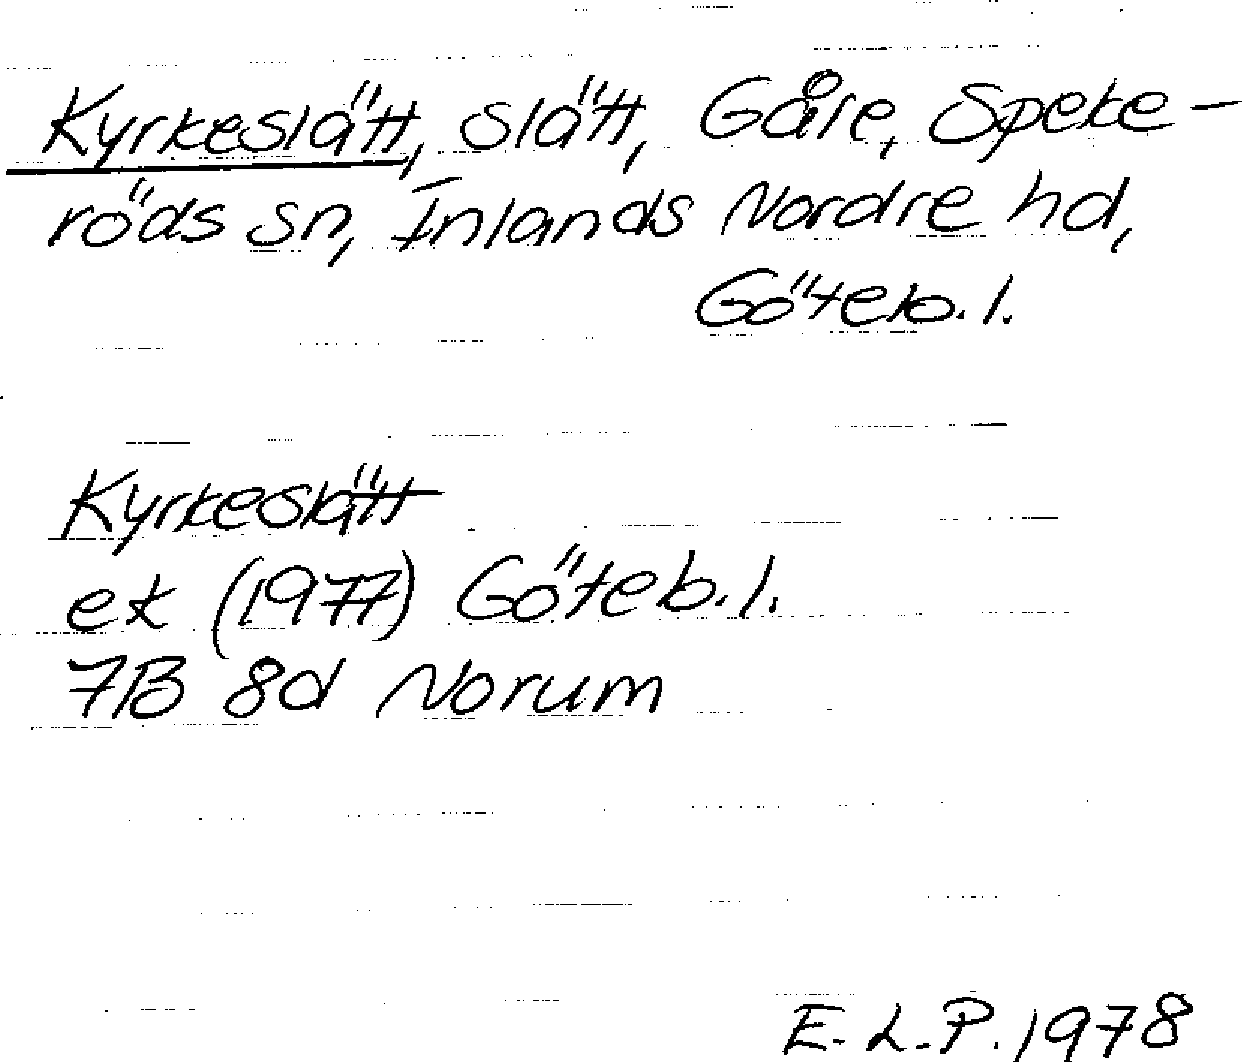 Kyrkeslätt, slätt, Gåre, Speke-
röds sn, Inlands Nordre hd,
Göteb. l.
Kyrkeslätt
ek (1977) Göteb. l.
7B 8d Norum
E. L. P. 1978